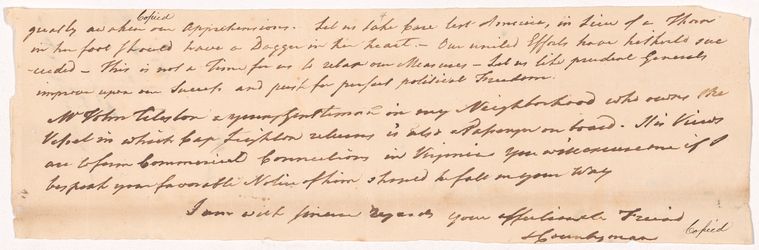 Copied
greatly awaken our Apprehensions. Let us take Care lest America, in Lieu of a Thorn
in her foot should have a Dagger in her heart. – Our united Efforts have hitherto suc
ceeded – This is not a Time for us to relax our Measures – Let us like prudent Generals
improve upon our Success, and push for perfect political Freedom.
Mr John a young Gentleman in my Neighborhood who owns the
Vessel in which Cap Leighton returns is also a Passenger on board. His Views
are to form Commercial Connections in Virginia you will excuse me if I
bespeak your favorable Notice of him should he fall in your Way
I am with sincere regards your affectionate Friend
& Countryman
Copied